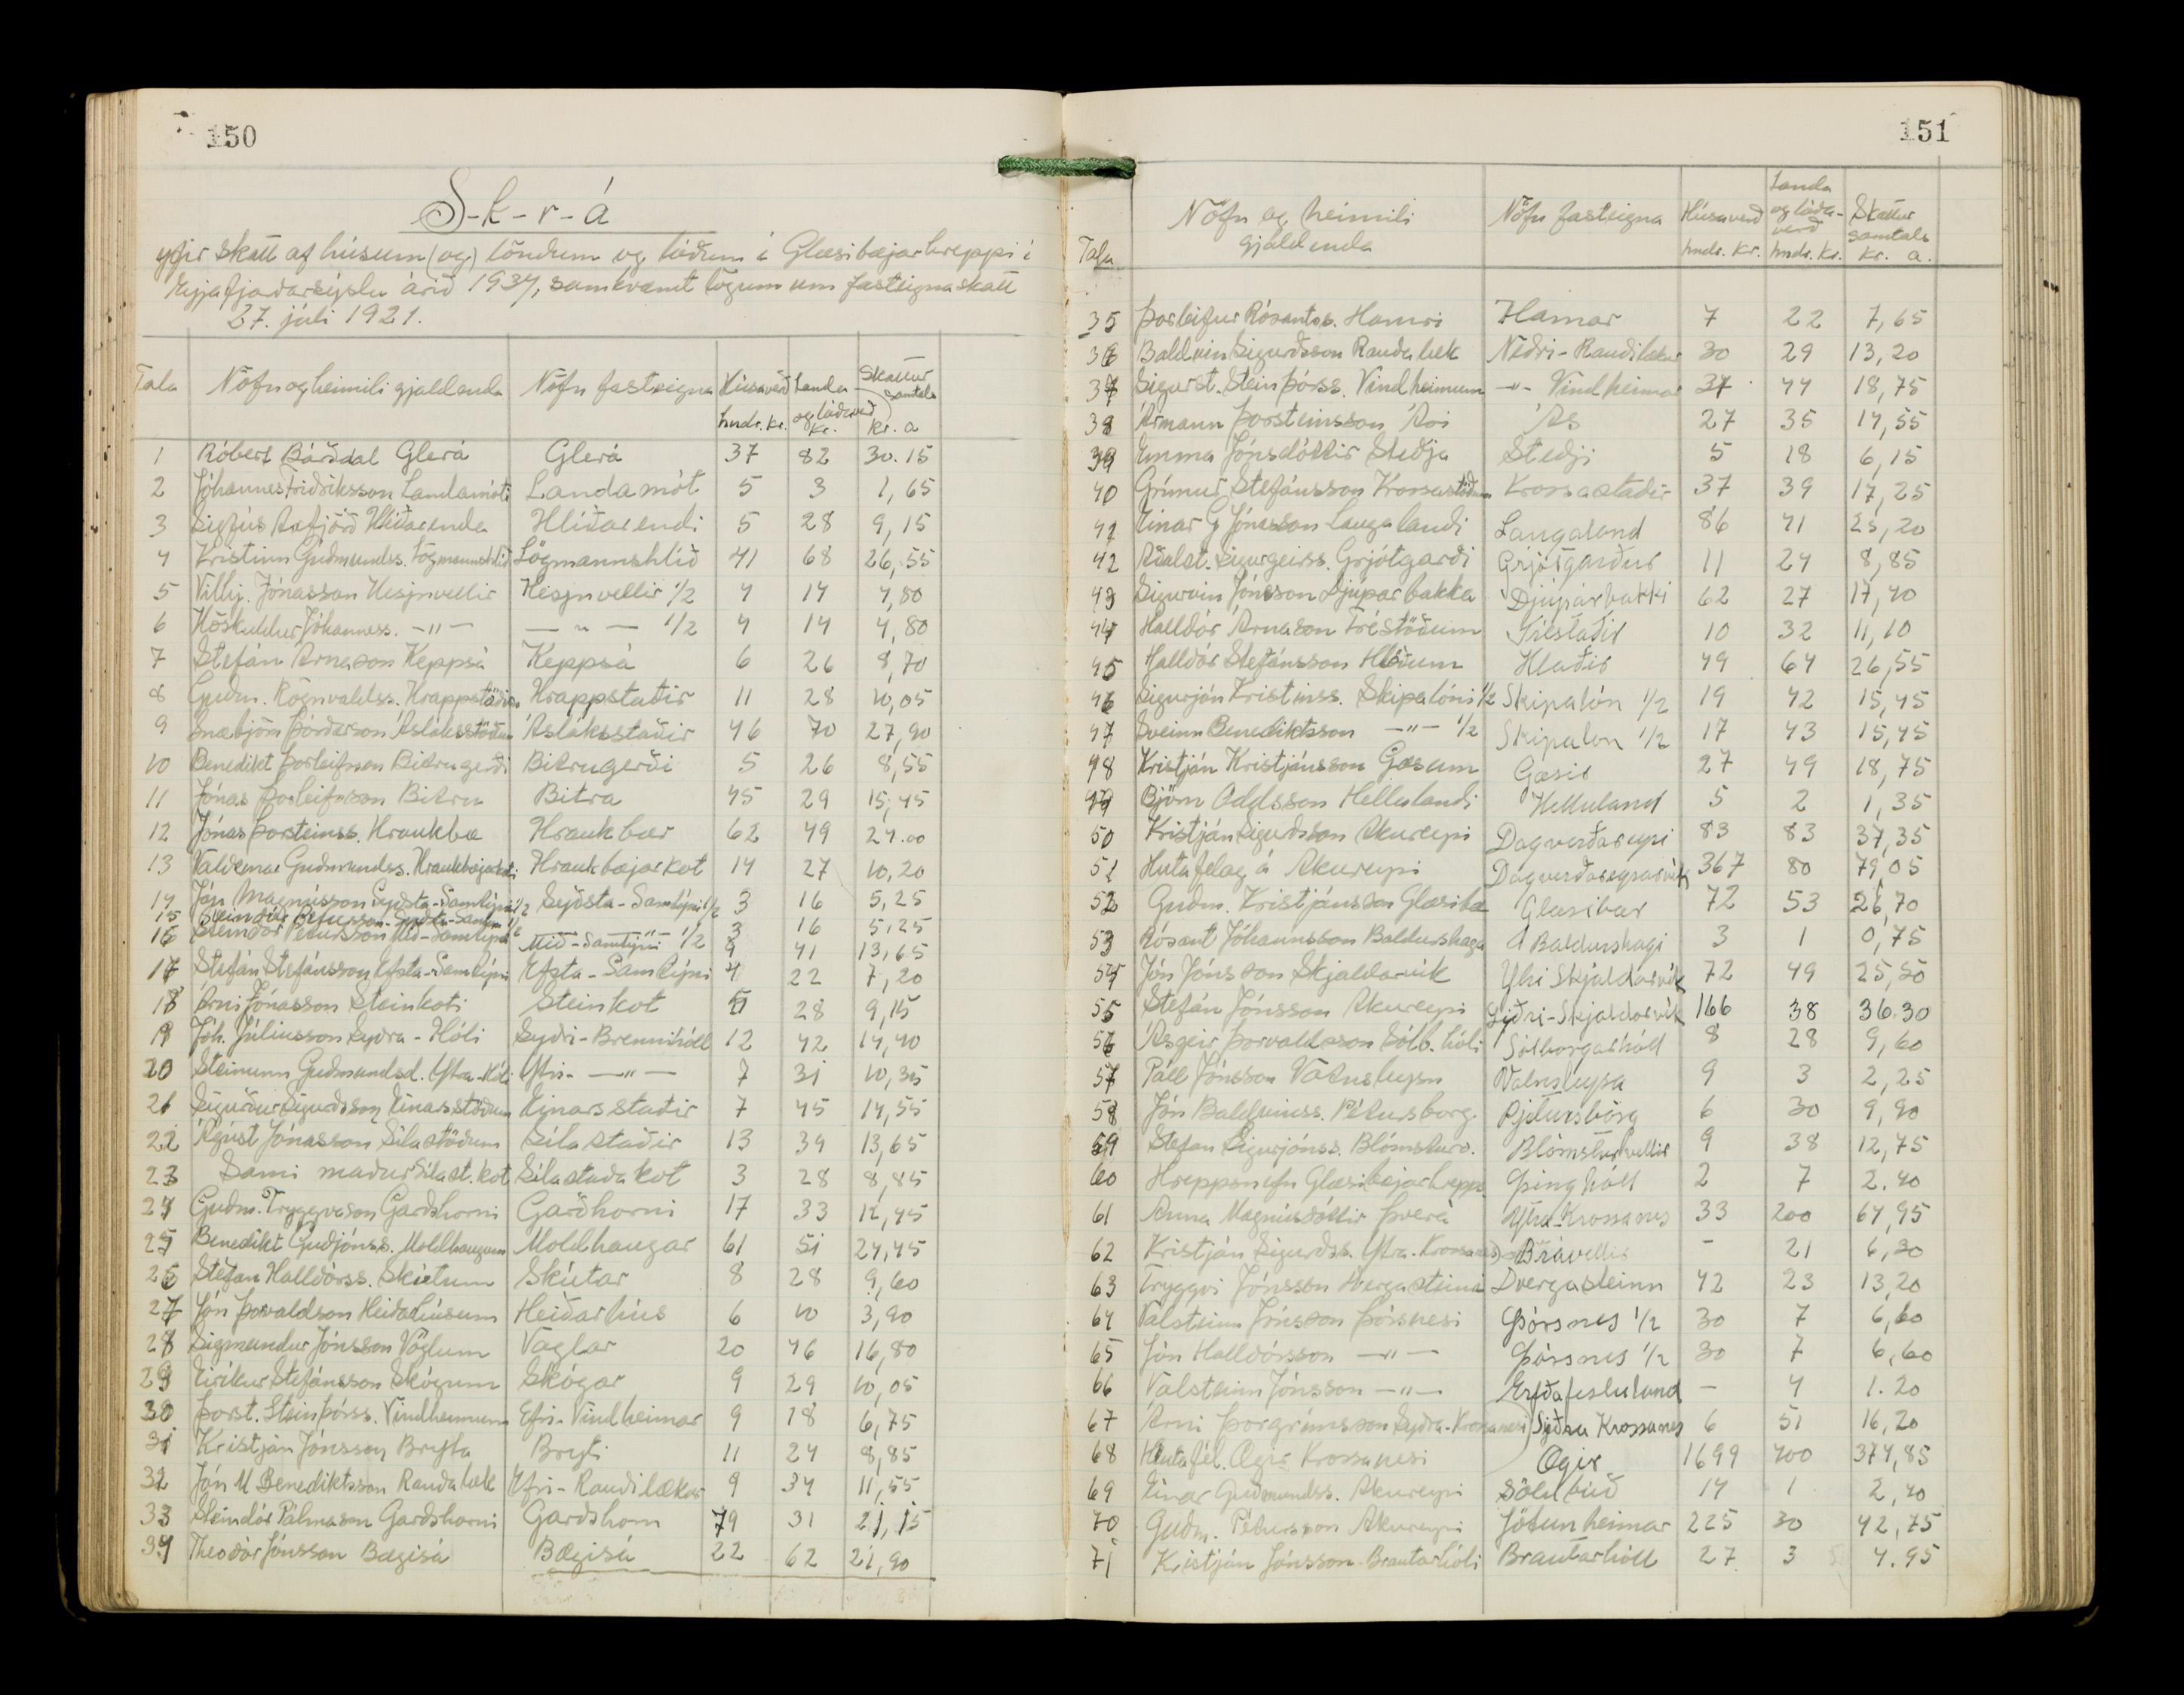 150
S-k-r-á
yfir skatt af húsum (og) löndum og lóðum í Glæsibæjarhreppi í
Eyjafjarðarsýslu árið 1934, samkvæmt lögum um fasteignaskatt
27. júlí 1921.
Tala Nöfn og heimili gjaldenda Nöfn fasteigna Húsaverð hndr. kr. Landa og lóðaverð kr. Skattur samtals kr. a
1 Róbert Bárðdal Glerá Glerá 37 82 30.15
2 Jóhannes Friðriksson Landamóti Landamót 5 3 1,65
3 Sigfús Axfjörð Hlíðarenda Hlíðarendi 5 28 9,15
4 Kristinn Guðmundss. Lögmannshlíð Lögmannshlíð 41 68 26,55
5 Vilhj. Jónasson Hesjuvellir Hesjuvellir 1/2 4 14 4,80
6 Höskuldur Jóhanness. -"- -"- 1/2 4 14 4,80
7 Stefán Árnason Keppsá Keppsá 6 26 8,70
8 Guðm. Rögnvaldss. Hrappstöðum Hrappstaðir 11 28 10,05
9 Snæbjörn Þórðarson Ásláksstöðum Ásláksstaðir 46 70 27,90
10 Benedikt Þorleifsson Bitrugerði Bitrugerði 5 26 8,55
11 Jónas Þorleifsson Bitru Bitra 45 29 15,45
12 Jónas Þorsteinss. Hraukbæ Hraukbær 62 49 24.00
13 Valdemar Guðmundss. Hraukbæjarkoti Hraukbæjarkot 14 27 10,20
14 Jón Magnússon Syðsta-Samtýni 1/2 Syðsta-Samtýni 1/2 3 16 5,25
15 Steindór Pétursson Syðsta-Samtýni 1/2 -"- 3 16 5,25
16 Steindór Pétursson Mið-Samtýni Mið-Samtýni 1/2 9 41 13,65
17 Stefán Stefánsson Efsta-Samtýni Efsta-Samtýni 4 22 7,20
18 Árni Jónasson Steinkoti Steinkot 5 28 9,15
19 Jóh. Júlíusson Syðra-Hóli Syðri-Brennihóll 12 42 14,40
20 Steinunn Guðmundsd. Ytra-Hóli Ytri- -"- 7 31 10,35
21 Sigurður Sigurðsson Einarsstöðum Einarsstaðir 7 45 14,55
22 Ágúst Jónasson Sílastöðum Sílastaðir 13 39 13,65
23 Sami maður Sílast.kot Sílastaðakot 3 28 8,85
24 Guðm. Tryggvason Garðshorni Garðhorni 17 33 12,45
25 Benedikt Guðjónss. Moldhaugum Moldhaugar 61 51 24,45
26 Stefán Halldórss. Skútum Skútar 8 28 9,60
27 Jón Þorvaldson Heiðahúsum Heiðarhús 6 10 3,90
28 Sigmundur Jónsson Vöglum Vaglar 20 46 16,80
29 Eiríkur Stefánsson Skógum Skógar 9 29 10,05
30 Þorst. Steinþórss. Vindheimum Efri-Vindheimar 9 18 6,75
31 Kristján Jónsson Bryta Bryti 11 24 8,85
32 Jón M Benediktsson Rauðalæk Efri-Rauðilækur 9 34 11,55
33 Steindór Pálmason Garðshorni Garðshorn 79 31 21,15
34 Theodór Jónsson Bægisá Bægisá 22 62 21,90
151
Tala Nöfn og heimili gjaldenda Nöfn fasteigna Húsaverð hndr. kr. Landa og lóða-verð hndr. kr. Skattur samtals kr. a.
35 Þorleifur Rósantss. Hamri Hamar 7 22 7,65
36 Baldvin Sigurðsson Rauðalæk Neðri-Rauðilækur 30 29 13,20
37 Sigurst. Steinþórss. Vindheimum -"- Vindheimar 37 44 18,75
38 Ármann Þorsteinsson Ási Ás 27 35 14,55
39 Emma Jónsdóttir Steðja Steðji 5 18 6,15
40 Grímur Stefánsson Krossastöðum Krossastaðir 37 39 17,25
41 Einar G Jónsson Laugalandi Laugaland 86 41 25,20
42 Aðalst. Sigurgeirss. Grjótgarði Grjótgarður 11 24 8,85
43 Sigurvin Jónsson Djúpárbakka Djúpárbakki 62 27 17,40
44 Halldór Árnason Tréstöðum Tréstaðir 10 32 11,10
45 Halldór Stefánsson Hlöðum Hlaðir 49 64 26,55
46 Sigurjón Kristinss. Skipalóni 1/2 Skipalón 1/2 19 42 15,45
47 Sveinn Benediktsson -"- 1/2 Skipalón 1/2 17 43 15,45
48 Kristján Kristjánsson Gæsum Gæsir 27 49 18,75
49 Björn Oddsson Hellulandi Helluland 5 2 1,35
50 Kristján Sigurðsson Akureyri Dagverðareyri 83 83 37,35
51 Hlutafélag á Akureyri Dagverðareyrarvík 367 80 79,05
52 Guðm. Kristjánsson Glæsibæ Glæsibær 72 53 26,70
53 Rósant Jóhannsson Baldurshaga Baldurshagi 3 1 0,75
54 Jón Jónsson Skjaldarvík Ytri Skjaldarvík 72 49 25,50
55 Stefán Jónsson Akureyri Syðri-Skjaldarvík 166 38 36.30
56 Ásgeir Þorvaldsson Sólb.hóli Sólborgarhóll 8 28 9,60
57 Páll Jónsson Vatnsleysu Vatnsleysa 9 3 2,25
58 Jón Baldvinss. Pétursborg Pjetursborg 6 30 9,90
59 Stefán Sigurjónss. Blómsturv. Blómsturvellir 9 38 12,75
60 Hreppsnefn Glæsibæjarhrepps Þinghóll 2 7 2.40
61 Anna Magnúsdóttir Þverá Ytra-Krossanes 33 200 64,95
62 Kristján Sigurðss. Ytra-Krossanesi Brávellir - 21 6,30
63 Tryggvi Jónsson Dvergasteini Dvergasteinn 42 23 13,20
64 Valsteinn Jónsson Þórsnesi Þórsnes 1/2 30 7 6,60
65 Jón Halldórsson -"- Þórsnes 1/2 30 7 6,60
66 Valsteinn Jónsson -"- Erfðafestuland - 4 1.20
67 Árni Þorgrímsson Syðra-Krossanesi Syðra Krossanes 6 51 16,20
68 Hlutafél. Ægir Krossanesi Ægir 1699 400 374,85
69 Einar Guðmundss. Akureyri Sölubúð 14 1 2,40
70 Guðm. Pétursson Akureyri Jötunheimar 225 30 42,75
71 Kristján Jónsson Brautarhóli Brautarhóll 27 3 4.95